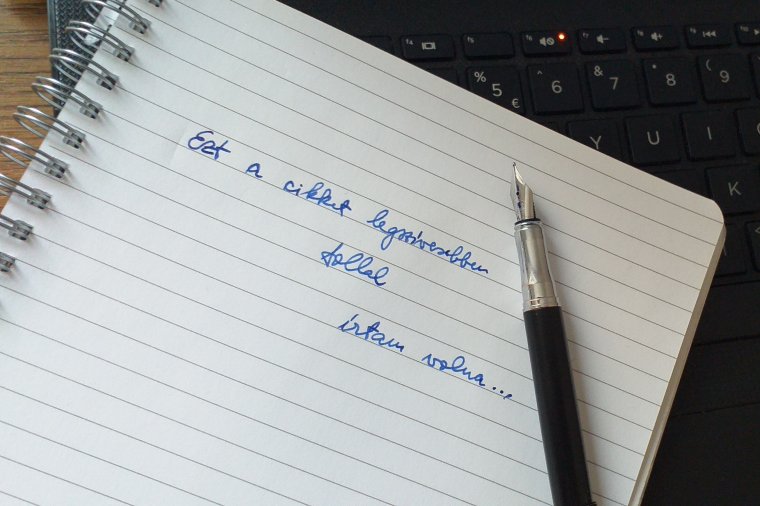 Ezt a cikket legszívesebben
tollal
írtam volna...
f4 f5 f6 f7 f8 f9
% 5 € ^ 6 & 7 * 8 ( 9
Y U I
K